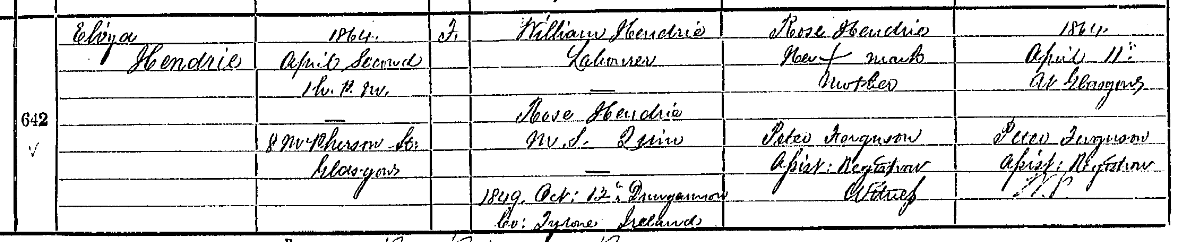 642
Eliza
Hendrie
1864
April Second
1h. P.M.
8 McPherson St.
Glasgow
F.
William Hendrie
Labourer
Rose Hendrie
M.S. Quin
1849. Oct: 12th Dungannon
Co: Tyrone Ireland
Rose Hendrie
Her X mark
Mother
Peter Ferguson
Assist: Registrar
Witness
1864
April 11th
At Glasgow
Peter Ferguson
Assist: Registrar